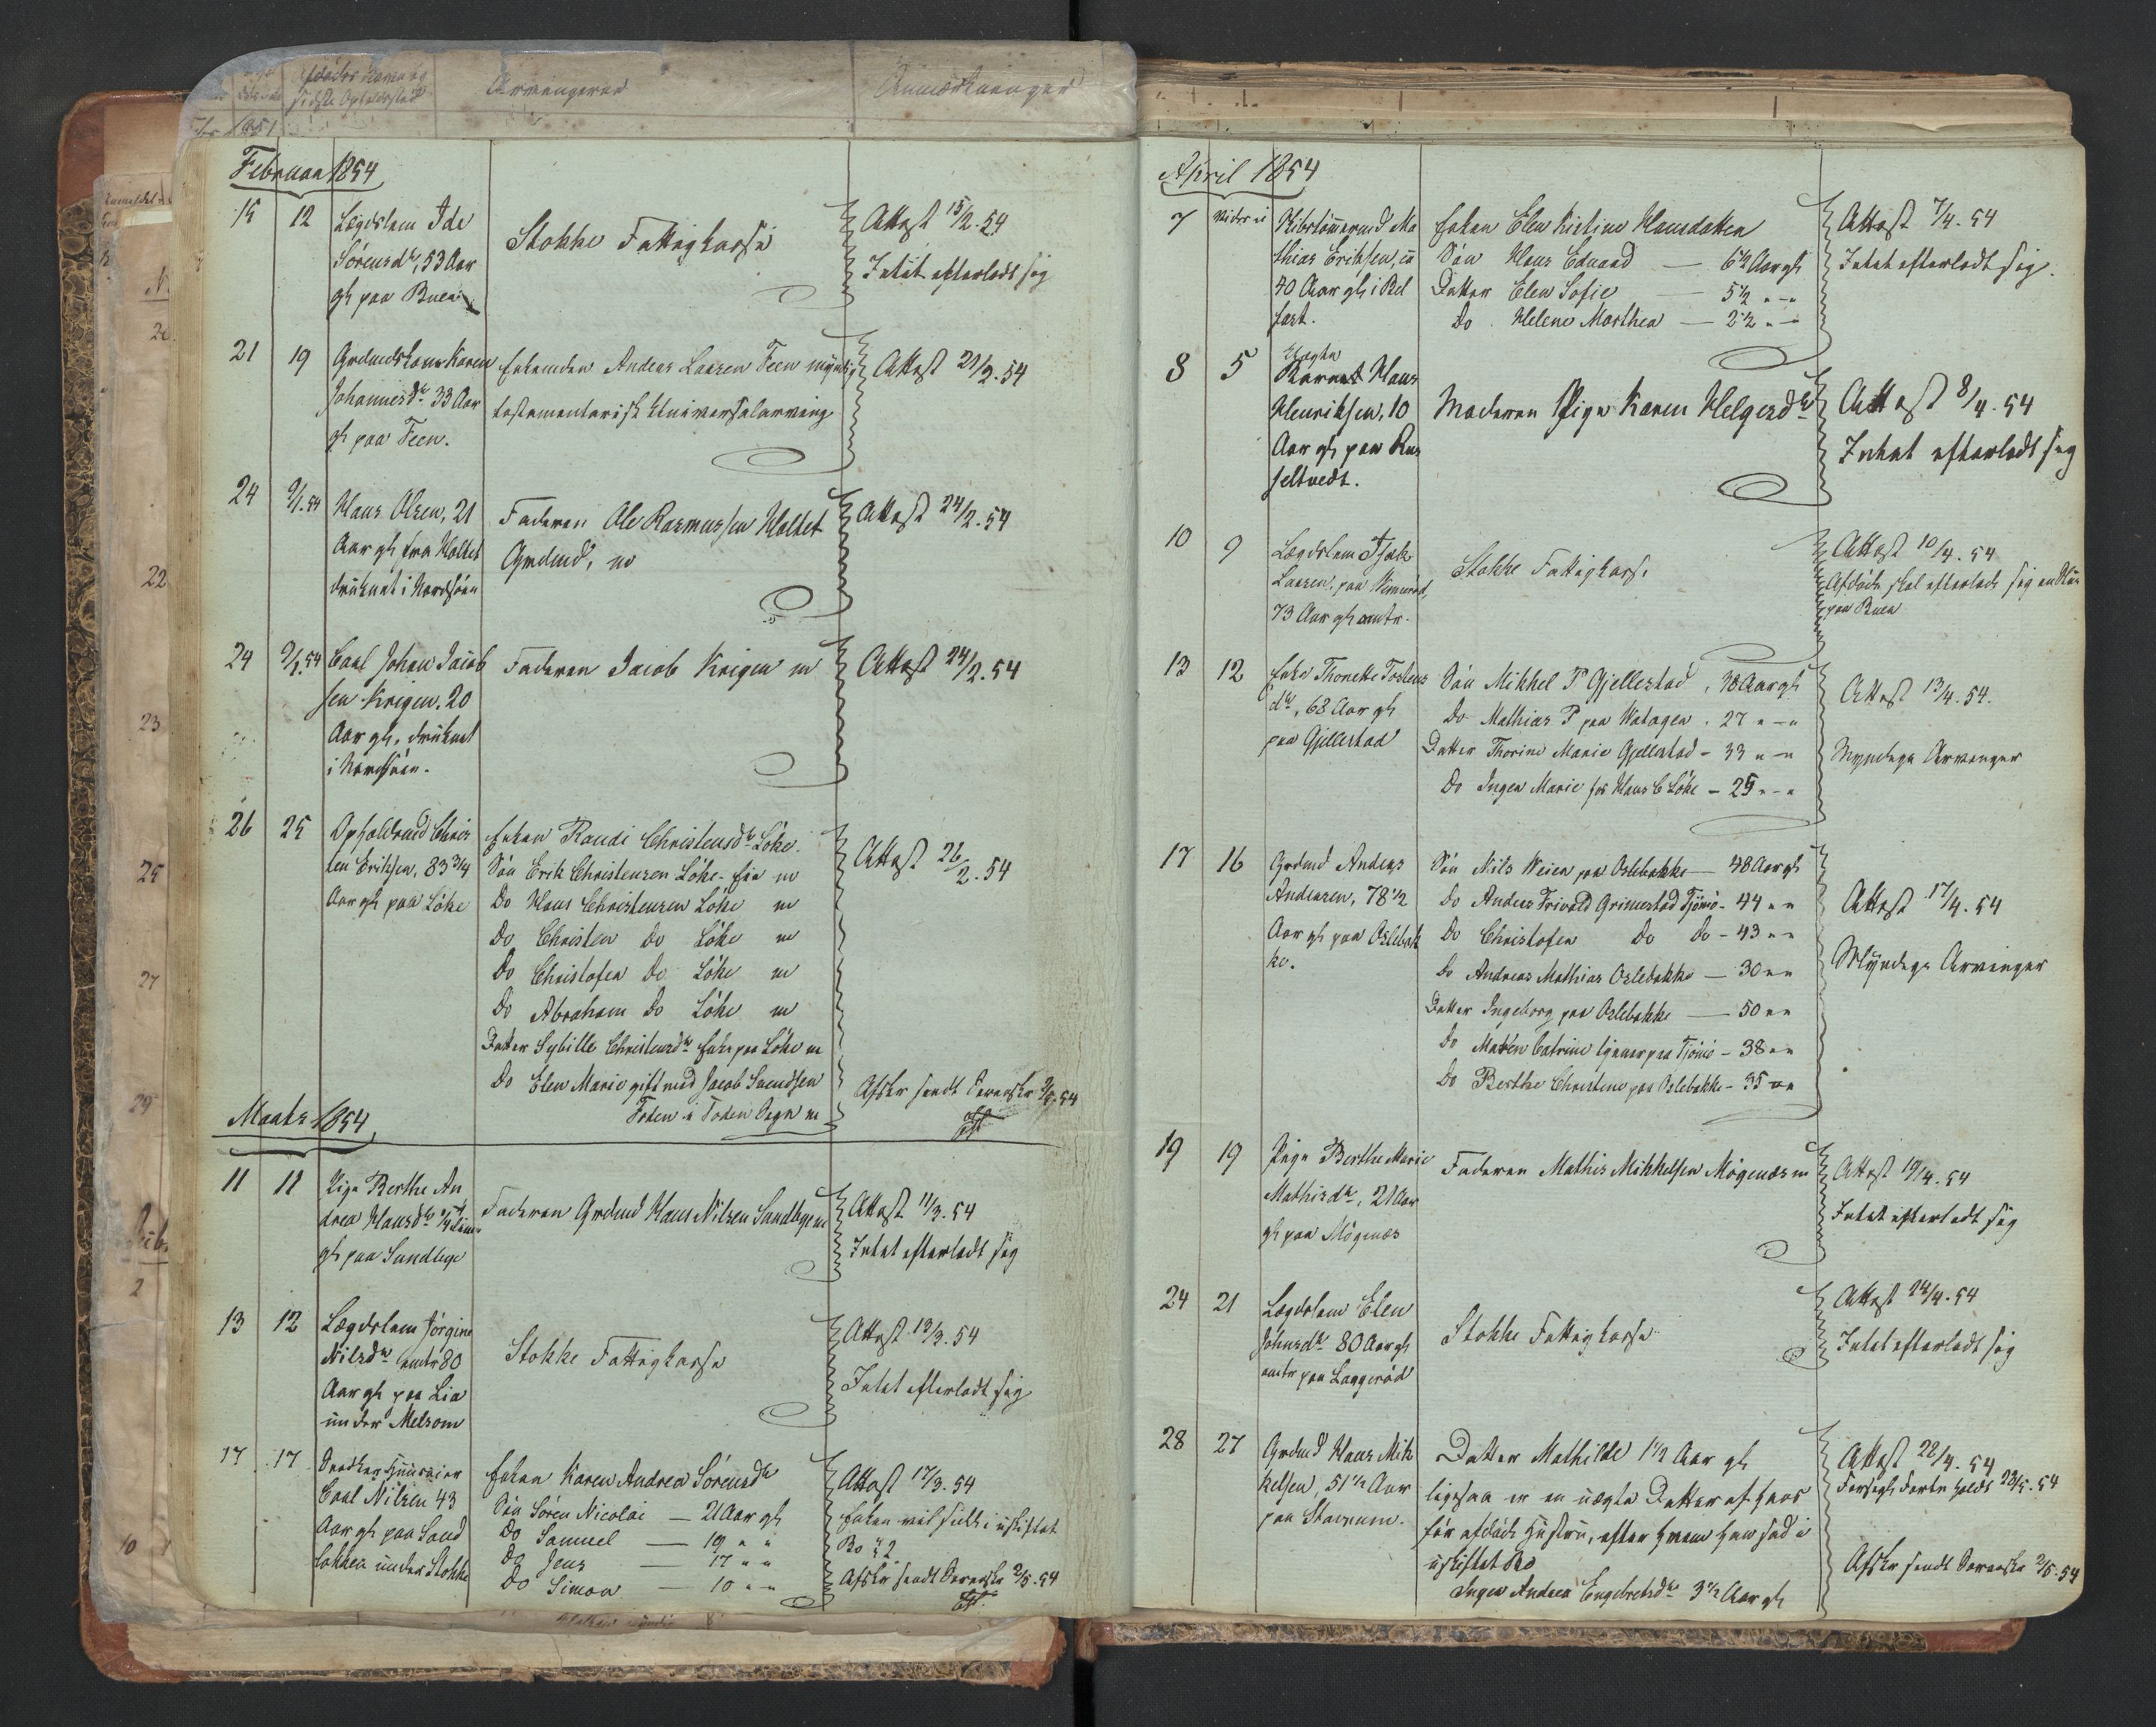 Arvingerne
Anmærkninger
Februar 1854
15 12 Lægdslem Ide
Sörensdtr, 53 Aar
gl paa Buen
Stokke Fattigkasse
Attest 15/2.54
Intet efterladt sig
21 19 Grdmdskone Karen
Johannesdr 33 Aar
gl paa Feen.
Enkemden Andeas Larsen Feen mynd.
testamentarisk Universalarving
Attest 21/2.54
24 Hans Olsen, 21
Aar gl fra Holtet
druknet i Nordsöen
Faderen Ole Rasmussen Holtet
Grdmd, m
Attest 24/2.54
24 Carl Johan Jacob
sen Krigen. 20
Aar gl, druknet
i Nordsöen.
Faderen Jacob Krigen m
Attest 24/2.54
26 25 Opholdsmd Chris
ten Eriksen, 83 3/4
Aar gl paa Löke
Enken Randi Christensdr Löke.
Sön Erik Christensen Löke m
Do Hans Christensen Löke m
Do Christen Do Löke m
Do Christofer Do Löke m
Do Abraham Do Löke m
Datter Sybille Christensdr Enke paa Löke m
Do Elen Marie gift med Jacob Svendsen
Foden i Foden Sogn m
Attest 26/2.54
Afskr sendt Sorenskr 2/5.54
Marts 1854
11 11 Pige Berthe An
drea Hansdr
gl paa Sundbye
Faderen Grdmd Hans Nilsen Sundbye m
Attest 11/3.54
Intet efterladt sig
13 12 Lægdslem Jörgine
Nilsdr omtr 80
Aar gl paa Lia
under Melsom
Stokke Fattigkasse
Attest 13/3.54
Intet efterladt sig
17 17 Snedker Huuseier
Carl Nilsen 43
Aar gl paa Sand
lökken under Stokke
Enken Karen Andrea Sörensdr
Sön Sören Nicolai — 21 Aar gl
Do Samuel — 19 " "
Do Jens — 17 " "
Do Simon — 10 " "
Attest 17/3.54
Enken vil sidde i uskiftet
Bo
Afskr sendt Sorenskr 2/5.54
April 1854
7 Skibstömmermd Ma
thias Eriksen,
40 Aar gl i Bel
fast.
Enken Elen Kirstine Hansdatter
Sön Hans Eduard — 6 1/2 Aar gl
Datter Elen Sofie — 5 1/2 " — "
Do Helene Marthea — 2 1/2 " — "
Attest 7/4.54
Intet efterladt sig.
8 5 Uægte
Barnet Hans
Henriksen, 10
Aar gl paa Rus
seltvedt.
Moderen Pige Karen Helgesdr
Attest 8/4.54
Intet efterladt sig
10 9 Lægdslem Isak
Larsen, paa Vennerød,
73 Aar gl omtr.
Stokke Fattigkasse
Attest 10/4.54
Afdöde skal efterlade sig en Stue
paa Buen
13 12 Enke Thonette Torstens
dr, 68 Aar gl
paa Gjellestad
Sön Mikkel P Gjellestad, 38 Aar gl
Do Mathias P paa Valagen. 27 " — "
Datter Thorine Marie Gjellestad — 33 " — "
Do Inger Marie hos Hans C Löke — 25 " — "
Attest 13/4.54.
Myndige Arvinger
17 16 Grdmd Andeas
Andersen, 78 1/2
Aar gl paa Oslebak
ke.
Sön Nils Weien paa Oslebakke — 48 Aar gl
Do Andeas Frivold Grimestad Tjömö — 44 " "
Do Christofer Do Do — 43 " "
Do Andreas Mathias Oslebakke — 30 " "
Datter Ingeborg paa Oslebakke — 50 " "
Do Maren Catrine tjener paa Tjömö — 38 " "
Do Berthe Christine paa Oslebakke — 35 " "
Attest 17/4.54
Myndige Arvinger
19 19 Pige Berthe Marie
Mathisdr, 21 Aar
gl paa Mögenæs
Faderen Mathis Mikkelsen Mögenæs m
Attest 19/4.54
Intet efterladt sig
24 21 Lægdslem Elen
Johnsdr 80 Aar gl
omtr paa Laggeröd
Stokke Fattigkasse
Attest 24/4.54
Intet efterladt sig
28 27 Grdmd Hans Mik
kelsen, 51 1/2 Aar
paa Stavnum.
Datter Mathilde 1 1/2 Aar gl
ligesaa er en uægte Datter af hans
för afdöde Hustru, efter hvem han sad i
uskiftet Bo
Inger Andrea Engebretsdr 3 1/2 Aar gl
Attest 28/4.54
Forsegl Fortn holdt 23/5.54
Afskr sendt Sorenskr 2/5.54